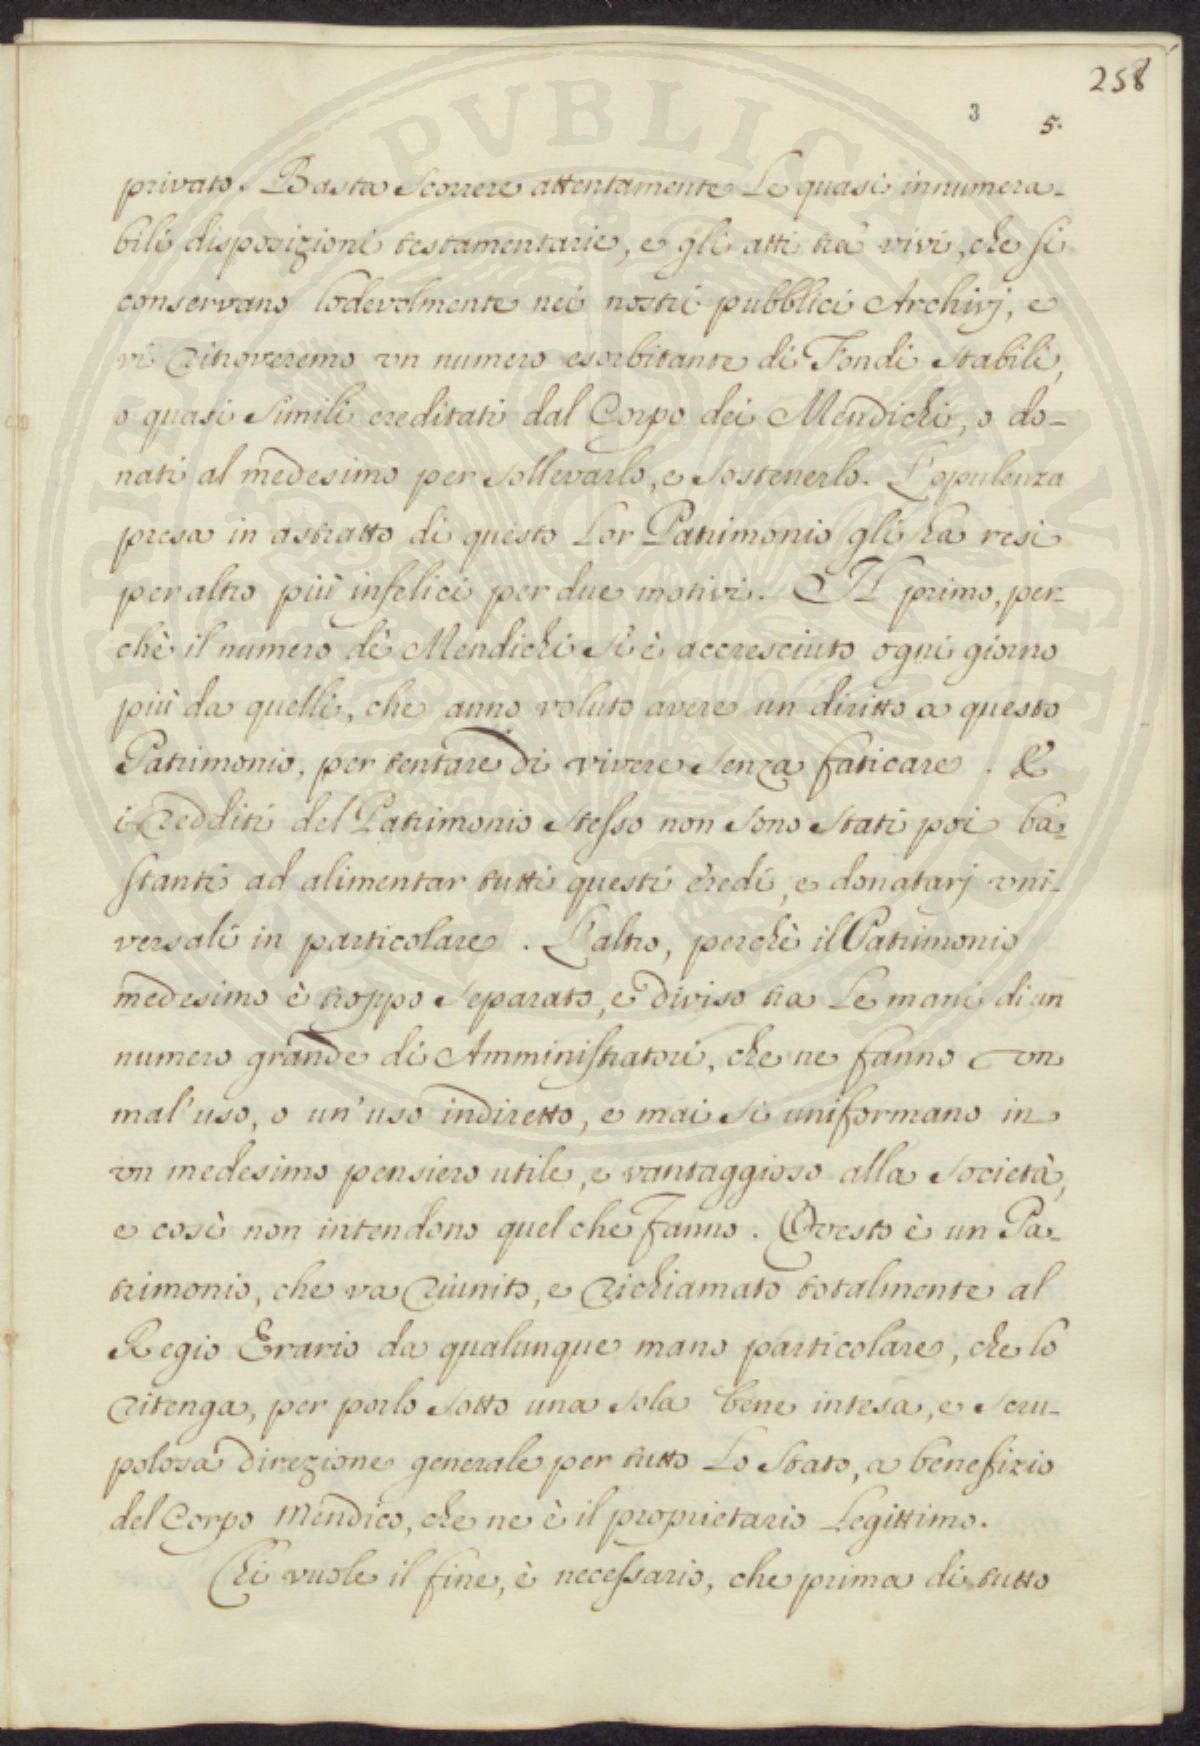 258
3
5.
privato. Basta scorrere attentamente le quasi innumera-
bili disposizioni testamentarie, e gli atti trà vivi, che si
conservano lodevolmente nei nostri pubblici Archivj, e
vi ritroveremo un numero esorbitante di Fondi stabili,
o quasi simili ereditati dal Corpo dei Mendichi, o do-
nati al medesimo per sollevarlo, e sostenerlo. L'opulenza
presa in astratto di questo lor Patrimonio gli ha resi
per altro più infelici per due motivi. Il primo, per-
chè il numero dè Mendichi si è accresciuto ogni giorno
più da quelli, che anno voluto avere un diritto a questo
Patrimonio, per tentare di vivere senza faticare. &
i redditi del Patrimonio stesso non sono stati poi ba-
stanti ad alimentar tutti questi èredi, e donatarj uni-
versali in particolare. L'altro, perchè il Patrimonio
medesimo è troppo separato, e diviso tra le mani di un
numero grande di Amministratori, che ne fanno un
mal'uso, o un'uso indiretto, e mai si uniformano in
un medesimo pensiero utile, e vantaggioso alla società,
e così non intendono quel che fanno. Questo è un Pa-
trimonio, che va riunito, e richiamato totalmente al
Regio Erario da qualunque mano particolare, che lo
ritenga, per porlo sotto una sola bene intesa, e scru-
polosa direzione generale per tutto lo Stato, a benefizio
del Corpo Mendico, che ne è il proprietario legittimo.
Chi vuole il fine, è necessario, che prima di tutto
PVBLICA